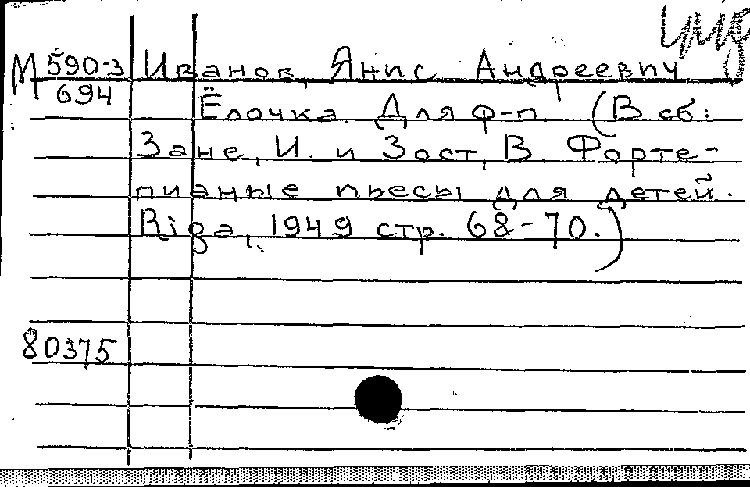 М 590-3 Иванов, Янис Андреевич
694
Ёлочка. Для ф-п. (В сб:
Зане, И. и Зост, В. Форте-
пианные пьесы для детей.
Riga, 1949 стр. 68-70.)
80375